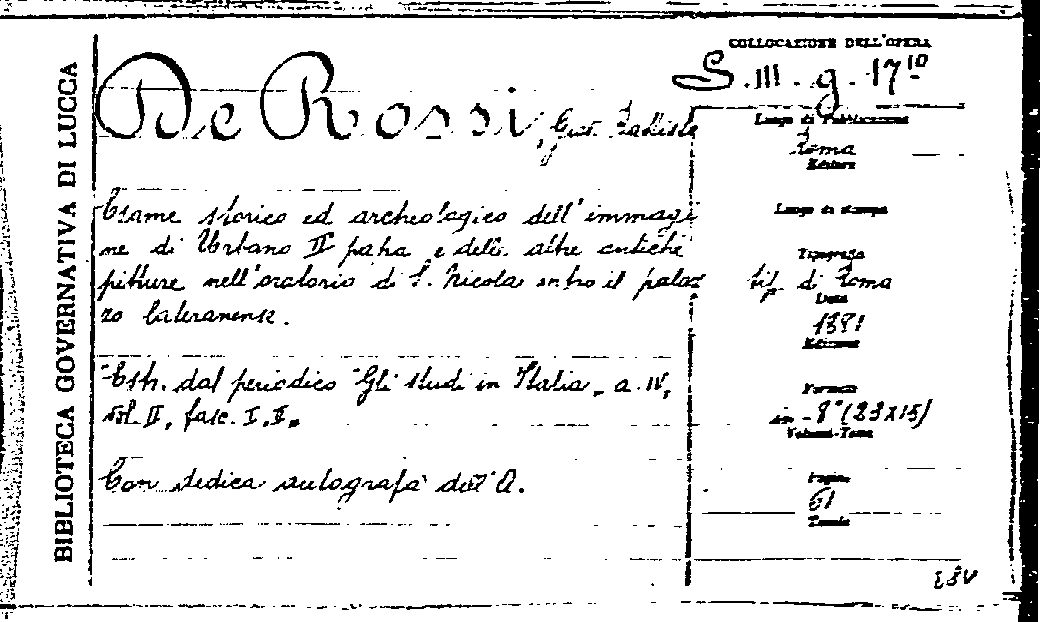 BIBLIOTECA GOVERNATIVA DI LUCCA
COLLOCAZIONE DELL'OPERA
S. III. g. 17¹⁰
De Rossi, Giov. Battista
Luogo di Pubblicazione
Roma
Editore
Esame storico ed archeologico dell'immagi
ne di Urbano II papa e delle altre antiche
pitture nell'oratorio di S. Nicola entro il palaz
zo lateranense.
Luogo di stampa
Tipografia
tip. di Roma
Data
1881
Edizione
Estr. dal periodico "Gli studi in Italia", a. IV,
vol. II, fasc. I, II.
Formato
in-8° (23x15)
Volumi-Tomi
Con dedica autografa dell'A.
Pagine
61
Tavole